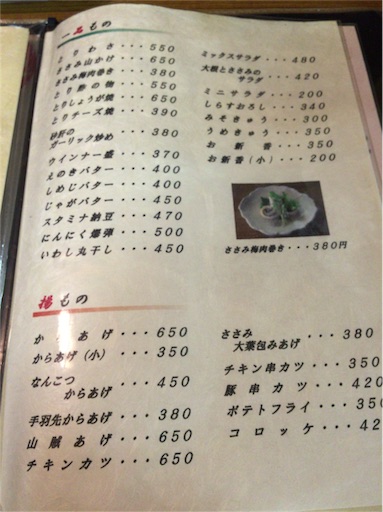 一品もの
とりわさ・・・550
ささみ山かけ・・・650
ささみ梅肉巻き・・・380
とり酢の物・・・550
とりしょうが焼・・・650
とりチーズ焼・・・390
砂肝の
ガーリック炒め・・・380
ウインナー盛・・・370
えのきバター・・・400
しめじバター・・・400
じゃがバター・・・450
スタミナ納豆・・・470
にんにく爆弾・・・500
いわし丸干し・・・450
ミックスサラダ・・・480
大根とささみの
サラダ・・・420
ミニサラダ・・・200
しらすおろし・・・340
みそきゅう・・・300
うめきゅう・・・350
お新香・・・350
お新香(小)・・・200
ささみ梅肉巻き・・・380円
揚もの
からあげ・・・650
からあげ(小)・・・350
なんこつ
からあげ・・・450
手羽先からあげ・・・380
山賊あげ・・・650
チキンカツ・・・650
ささみ
大葉包みあげ・・・380
チキン串カツ・・・350
豚串カツ・・・420
ポテトフライ・・・350
コロッケ・・・420